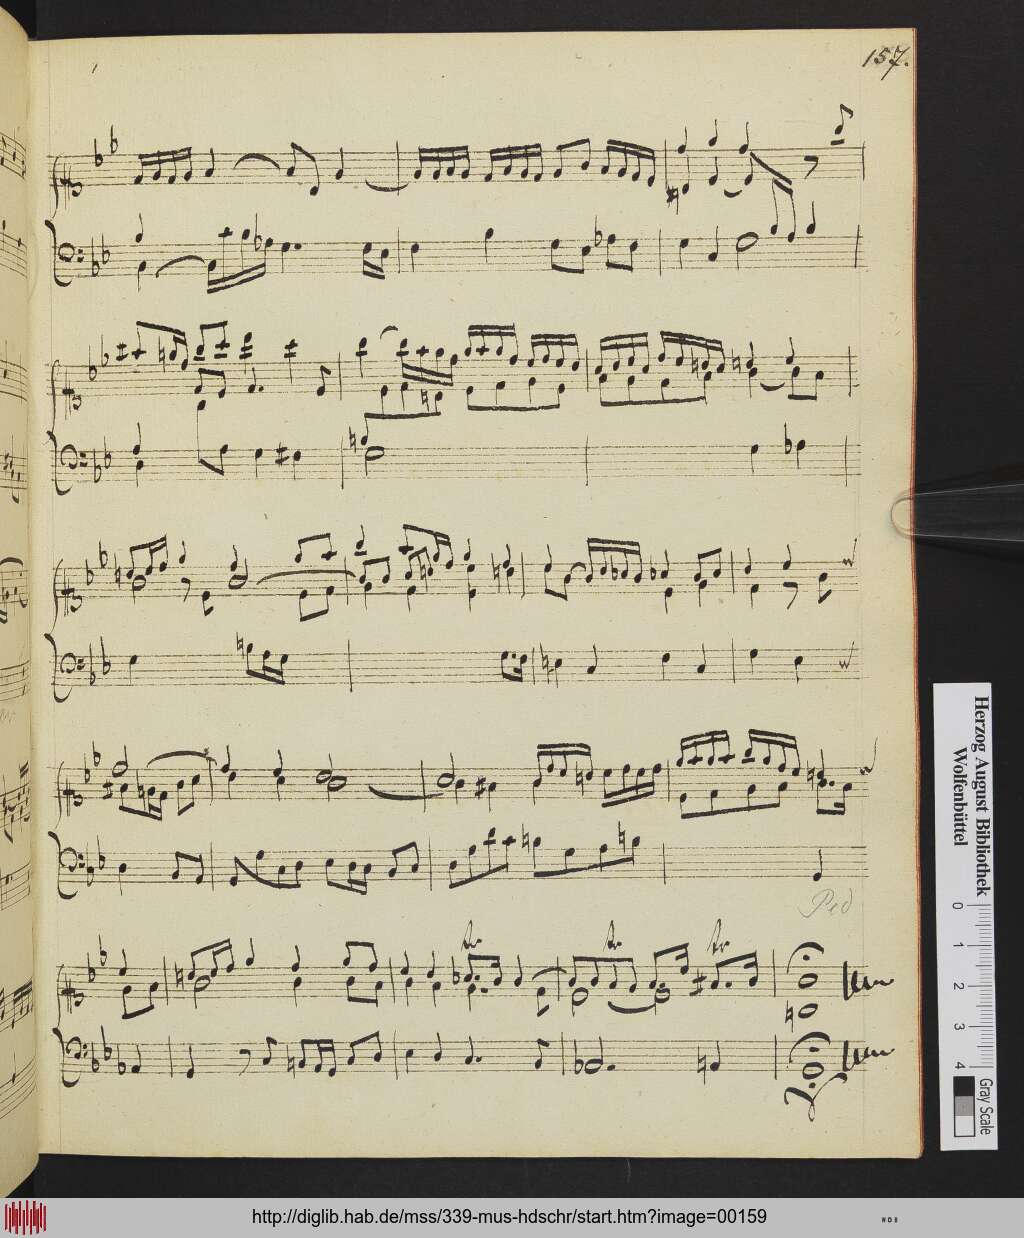 157.
Ped
tr tr tr
Herzog August Bibliothek
Wolfenbüttel
0 1 2 3 4
Gray Scale
http://diglib.hab.de/mss/339-mus-hdschr/start.htm?image=00159